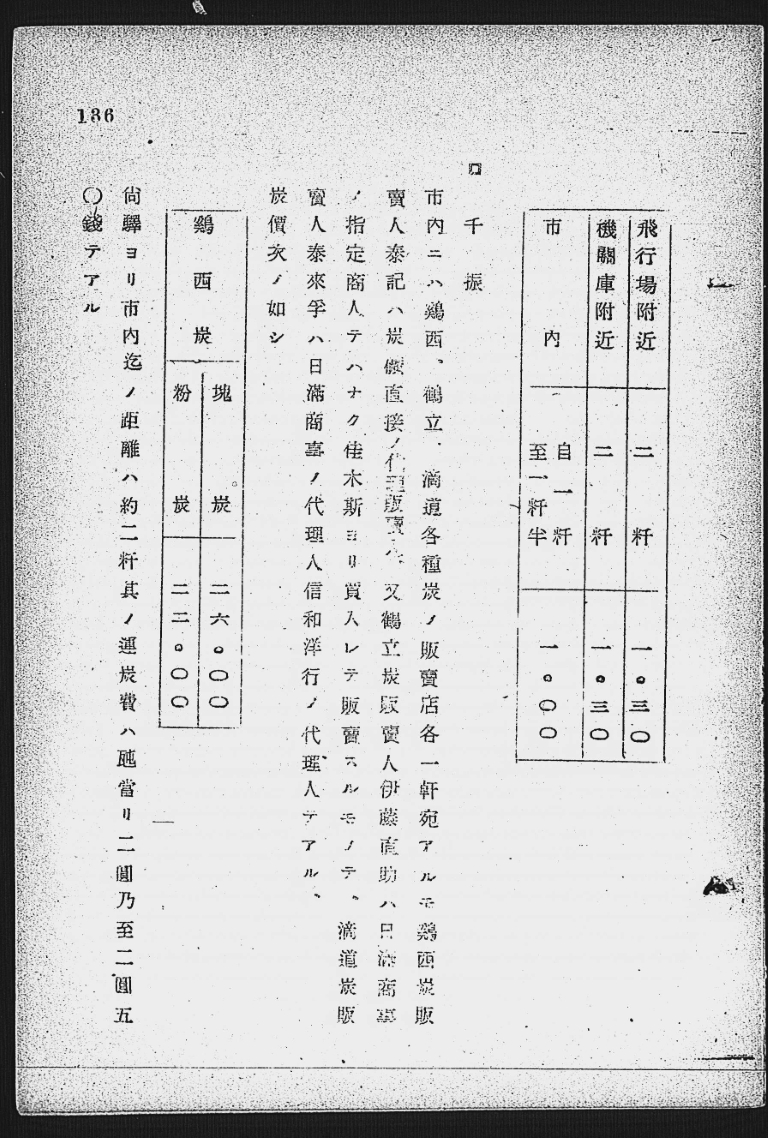 186
飛行場附近 二粁 一。三〇
機關庫附近 二粁 一。三〇
市內 自一粁 至一粁半 一。〇〇
千振
市內ニハ鷄西、鶴立、滴道各種炭ノ販賣店各一軒宛アルモ鷄西炭販
賣人泰記ハ炭礦直接ノ代理販賣デハ 又鶴立炭販賣人伊藤直助ハ日滿商事
ノ指定商人テハナク佳木斯ヨリ買入レテ販賣スルモノテ。滴道炭販
賣人泰來孚ハ日滿商事ノ代理人信和洋行ノ代理人テアル、
炭價次ノ如シ
鷄西炭
塊炭 二六。〇〇
粉炭 二二。〇〇
尙驛ヨリ市內迄ノ距離ハ約二粁其ノ運炭費ハ瓲當リ二圓乃至二圓五
〇錢テアル